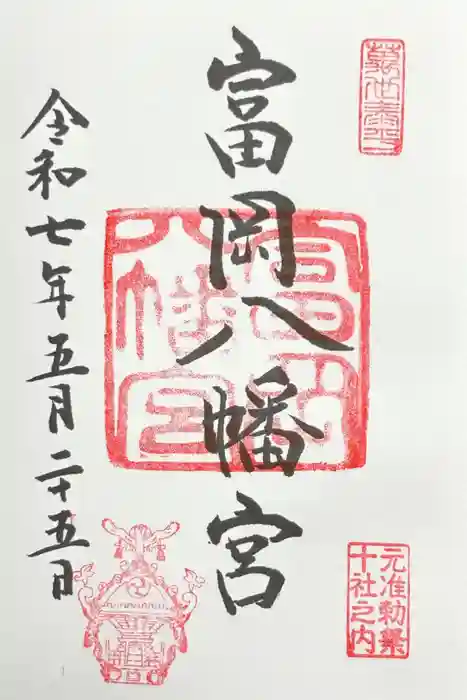 萬世泰平
富岡八幡宮
富岡八幡宮
元准勅祭
十社之内
令和七年五月二十五日